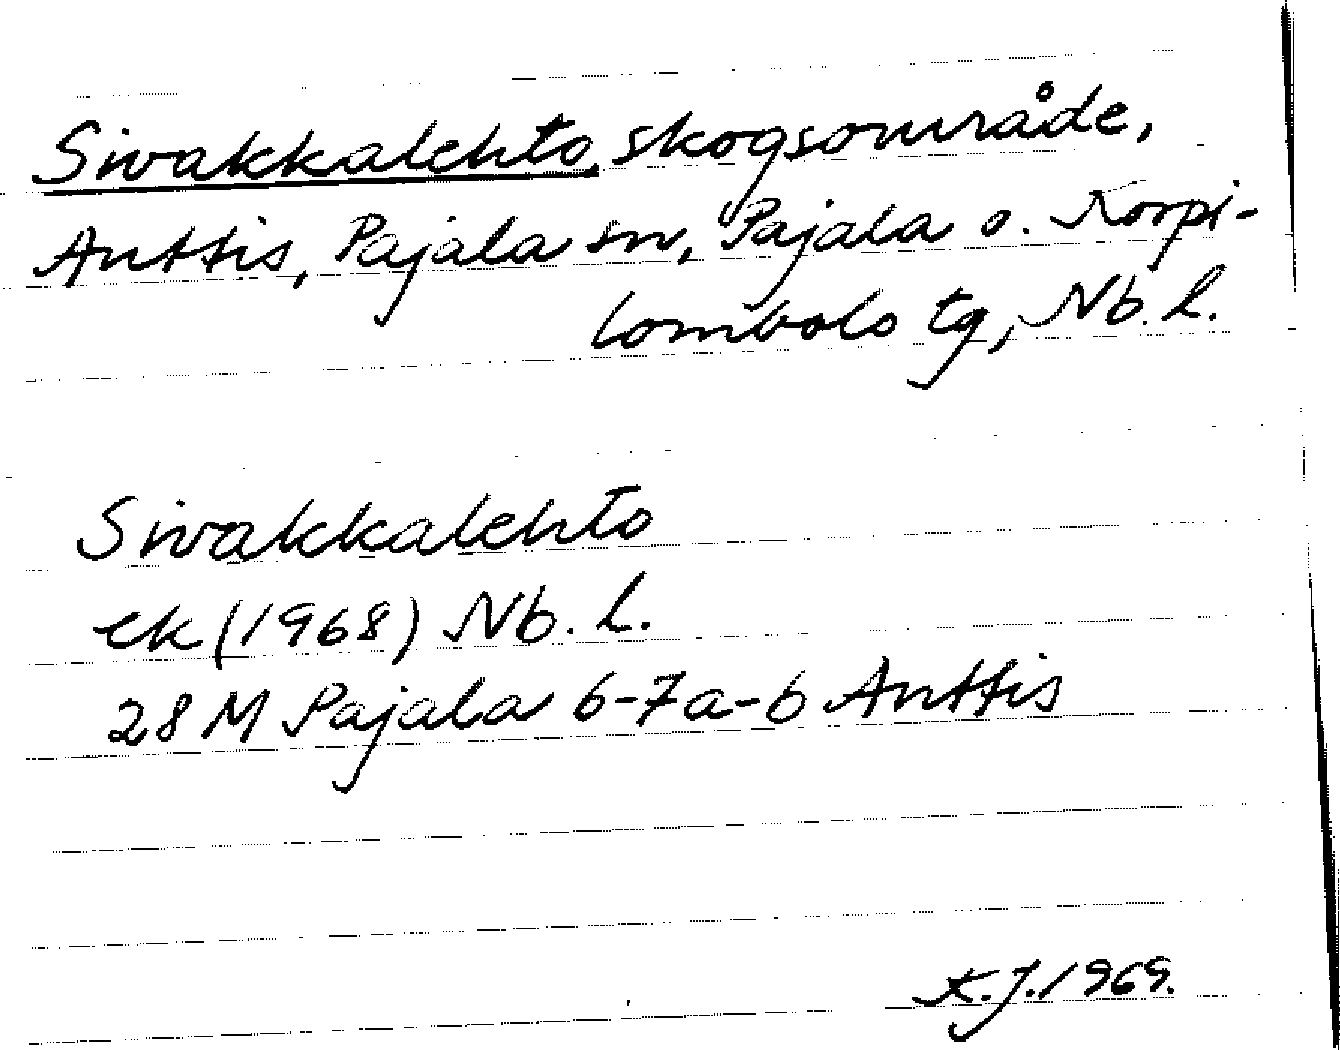 Sivakkalehto, skogsområde,
Anttis, Pajala sn, Pajala o. Korpi-
lombolo tg, Nb. l.
Sivakkalehto
ek (1968) Nb. L.
28 M Pajala 6-7a-b Anttis
K.J. 1969.